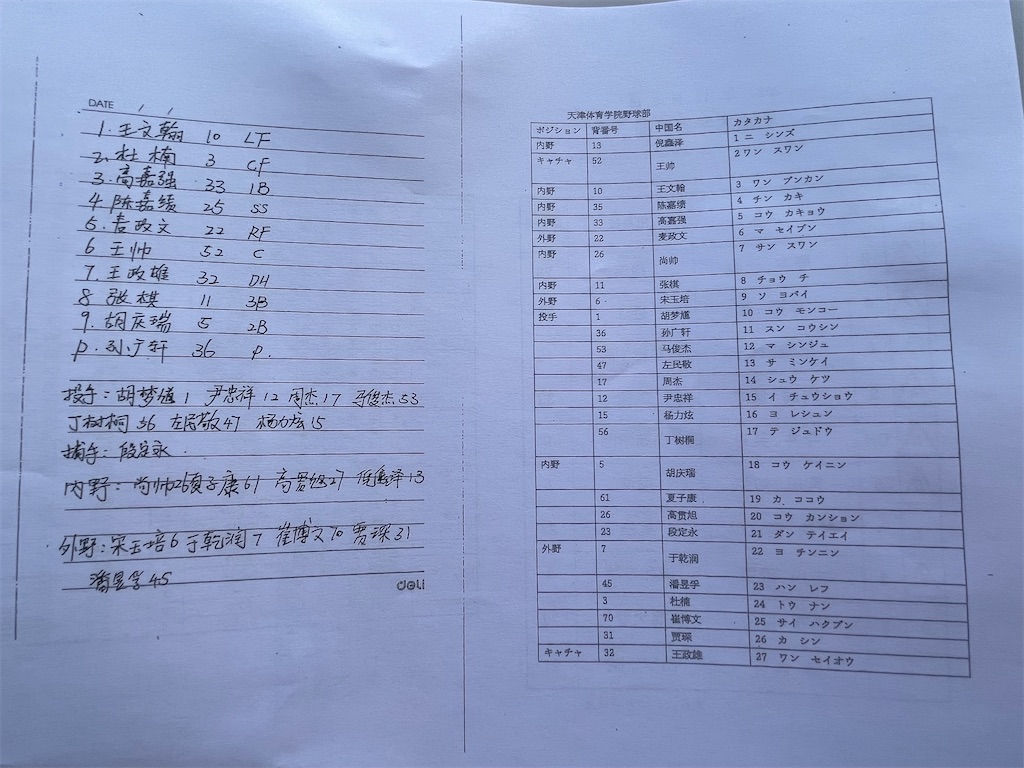 DATE / /
1. 王文翰 10 LF
2. 杜楠 3 CF
3. 高嘉强 33 1B
4 陈嘉绩 25 SS
5. 麦政文 22 RF
6 王帅 52 C
7. 王政雄 32 DH
8 张棋 11 3B
9. 胡庆瑞 5 2B
P. 孙广轩 36 P.
投手: 胡梦 1 尹忠祥 12 周杰 17 马俊杰 53
丁树桐 56 左民敬 47 杨力炫 15
捕手: 段定永
内野: 尚帅26 夏子康 61 高贯旭27 倪鑫泽 13
外野: 宋玉培 6 于乾润 7 崔博文 70 贾琛 31
潘昱孚 45
deli
天津体育学院野球部
ポジション 背番号 中国名 カタカナ
内野 13 倪鑫泽 1 ニ シンズ
キャチャ 52 王帅 2 ワン スワン
内野 10 王文翰 3 ワン ブンカン
内野 35 陈嘉绩 4 チン カキ
内野 33 高嘉强 5 コウ カキョウ
外野 22 麦政文 6 マ セイブン
内野 26 尚帅 7 サン スワン
内野 11 张棋 8 チョウ チ
外野 6 宋玉培 9 ソ ヨパイ
投手 1 胡梦 10 コウ モンコー
36 孙广轩 11 スン コウシン
53 马俊杰 12 マ シンジュ
47 左民敬 13 サ ミンケイ
17 周杰 14 シュウ ケツ
12 尹忠祥 15 イ チュウショウ
15 杨力炫 16 ヨ レシュン
56 丁树桐 17 テ ジュドウ
内野 5 胡庆瑞 18 コウ ケイニン
61 夏子康 19 カ ココウ
26 高贯旭 20 コウ カンション
23 段定永 21 ダン テイエイ
外野 7 于乾润 22 ヨ チンニン
45 潘昱孚 23 ハン レフ
3 杜楠 24 トウ ナン
70 崔博文 25 サイ ハクブン
31 贾琛 26 カ シン
キャチャ 32 王政雄 27 ワン セイオウ